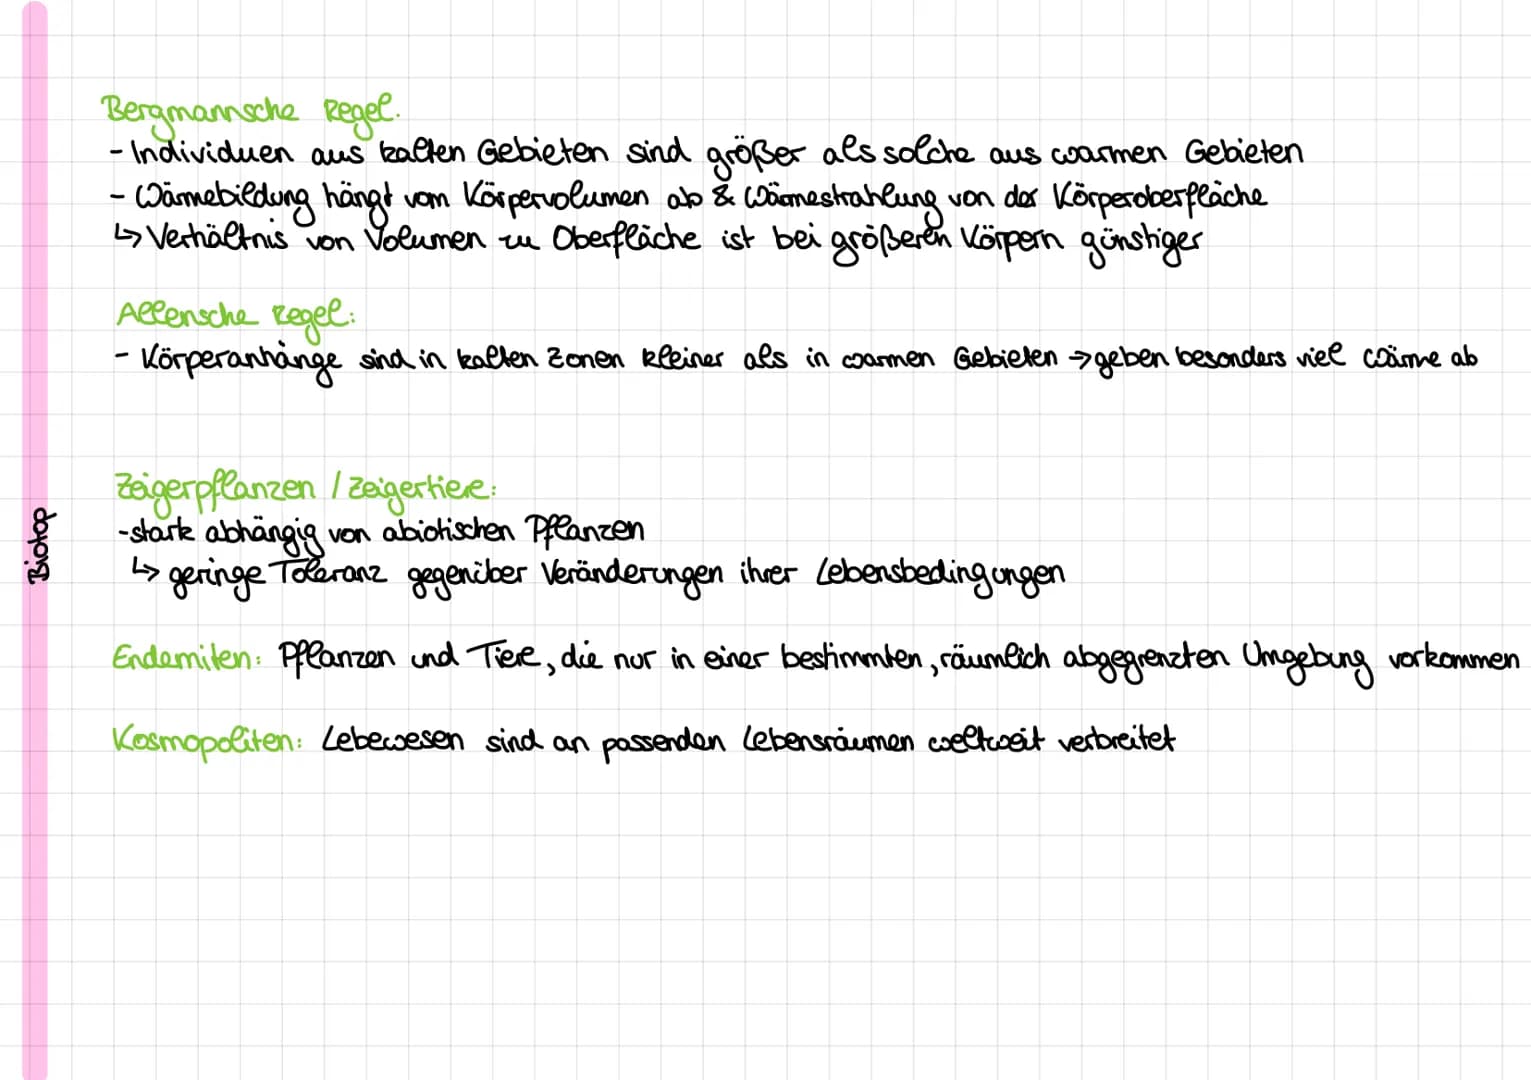 Bergmannsche Regel.
- Individuen aus kalten Gebieten sind größer als solche aus warmen Gebieten
- Wärmebildung hängt vom Körpervolumen ab & Wärmestrahlung von der Körperoberfläche
↳ Verhältnis von Volumen zu Oberfläche ist bei größeren Körpern günstiger
Allensche Regel:
- Körperanhänge sind in kalten Zonen kleiner als in warmen Gebieten → geben besonders viel Wärme ab
Zeigerpflanzen / Zeigertiere:
- stark abhängig von abiotischen Pflanzen
↳ geringe Toleranz gegenüber Veränderungen ihrer Lebensbedingungen
Endemiten: Pflanzen und Tiere, die nur in einer bestimmten, räumlich abgegrenzten Umgebung vorkommen
Kosmopoliten: Lebewesen sind an passenden Lebensräumen weltweit verbreitet
Biotop